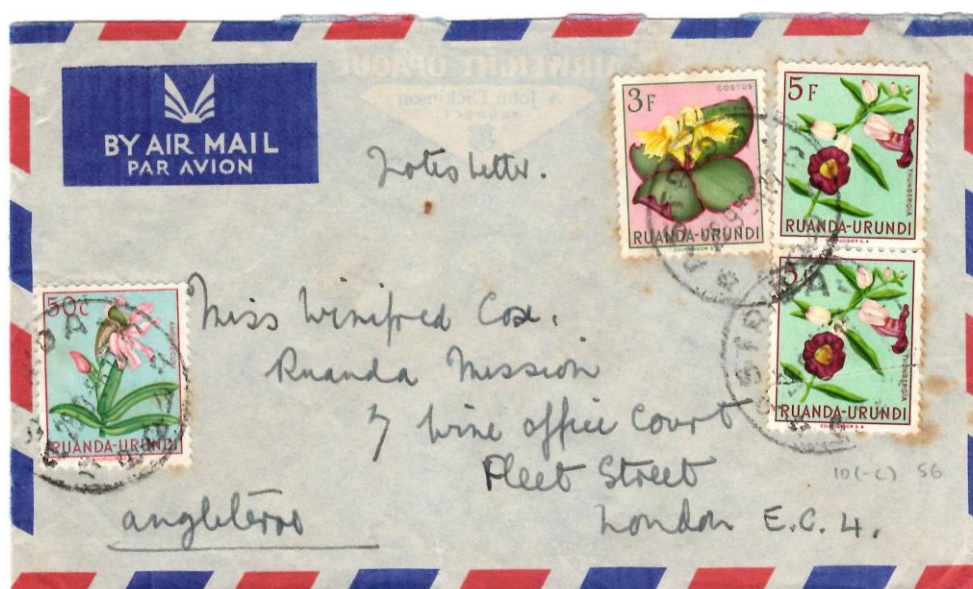 BY AIR MAIL
PAR AVION
AIRWEIGHT OPAQUE
A John Dickinson
PRODUCT
3F
COSTUS
RUANDA-URUNDI
5F
THUNBERGIA
RUANDA-URUNDI
5
THUNBERGIA
RUANDA-URUNDI
50c
RUANDA-URUNDI
Notes Letter.
Miss Winifred Cox.
Ruanda Mission
7 Wine Office Court
Fleet Street
London E.C.4.
Angleterre
10(-c) 56